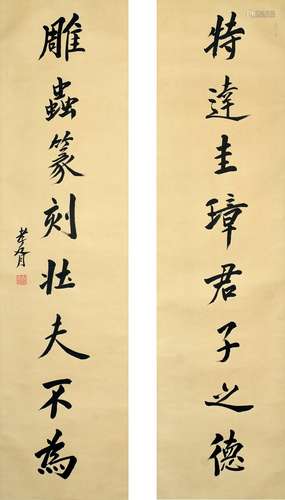 特達圭璋君子之德
雕蟲篆刻壯夫不為
孝胥